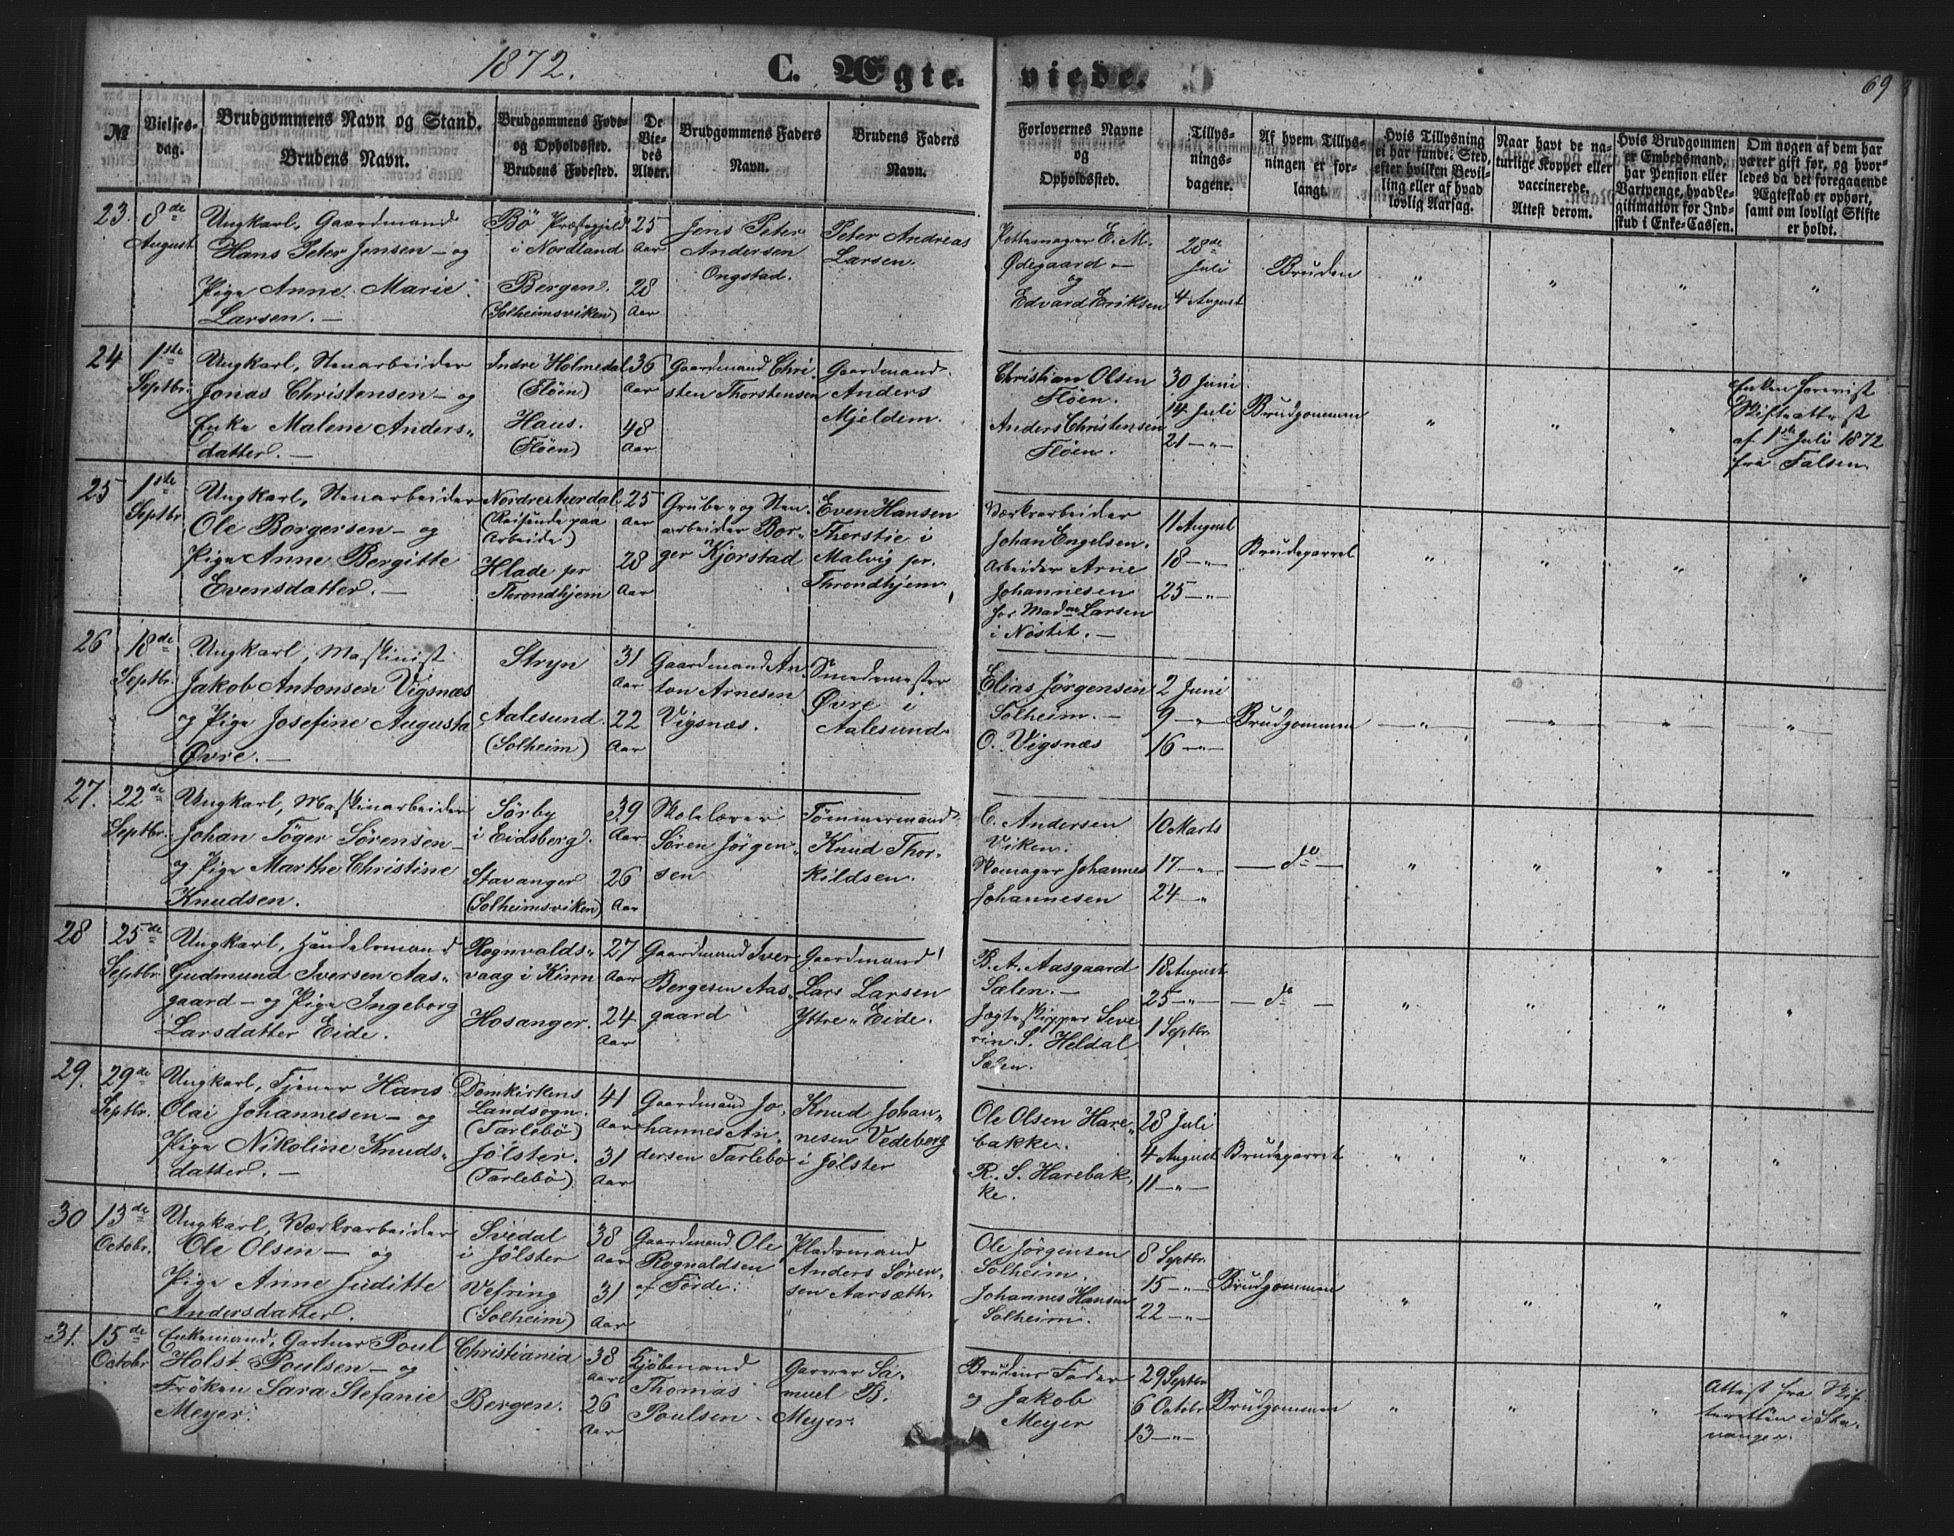 1872.
C. Ægte-
viede.
69
№
Vielses-
dag.
Brudgommens Navn og Stand.
Brudens Navn.
Brudgommens Føde-
og Opholdssted.
Brudens Fødested.
De
Vie-
des
Alder.
Brudgommens Faders
Navn.
Brudens Faders
Navn.
Forlovernes Navne
og
Opholdssted.
Tillys-
nings-
dagene.
Af hvem Tillys-
ningen er for-
langt.
Hvis Tillysning
ei har fundet Sted,
efter hvilken Bevil-
ling eller af hvad
lovlig Aarsag.
Naar havt de na-
turlige Kopper eller
vaccinerede.
Attest derom.
Hvis Brudgommen
er Embedsmand,
har Pension eller
Vartpenge, hvad Le-
gitimation for Ind-
skud i Enke-Cassen.
Om nogen af dem har
været gift før, og hvor-
ledes da det foregaaende
Ægteskab er ophørt,
samt om lovligt Skifte
er holdt.
23.
8de
August
Ungkarl, Gaardmand
Hans Peter Jensen – og
Pige Anne Marie
Larsen. –
Bö Præstegjeld
i Nordland
Bergen.
(Solheimsviken)
25
Aar
28
Aar
Jens Peter
Andersen
Ongstad.
Peter Andreas
Larsen.
Pottemager E. M.
Ødegaard –
og
Edvard Eriksen
28de
Juli
4 August
Bruden
"
"
"
"
24
1ste
Septbr.
Ungkarl, Stenarbeider
Jonas Christensen – og
Enke Malene Anders-
datter. –
Indre Holmedal
(Flöen)
Haus.
(Flöen)
36
Aar
48
Aar
Gaardmand Chri
sten Thorstensen
Gaardmand
Anders
Mjeldem.
Christian Olsen
Flöen.
Anders Christensen
Flöen.
30 Juni
14 Juli
21 – " –
Brudgommen
"
"
"
Enken forevist
Skifteattest
af 1ste Juli 1872
fra Falsen.
25
1ste
Septbr
Ungkarl, Stenarbeider
Ole Borgersen – og
Pige Anne Bergitte
Evensdatter. –
Nordre Aurdal
(Reisende paa
Arbeide)
Hlade pr
Throndhjem
25
Aar
28
Aar
Grube- og Sten-
arbeider Bor-
ger Kjorstad
Even Hansen
Therstie i
Malvig pr.
Throndhjem.
Værksarbeider
Johan Engelsen.
Arbeider Arne
Johannesen
hos Madme Larsen
i Nöstet. –
11 August
18 – " –
25 – " –
Brudeparret
"
"
"
"
26
18de
Septbr.
Ungkarl, Maskinist
Jakob Antonsen Vigsnæs
og Pige Josefine Augusta
Øvre. –
Stryn
Aalesund.
(Solheim)
31
Aar
22
Aar
Gaardmand An-
ton Arnesen
Vigsnæs.
Smedemester
Øvre i
Aalesund.
Elias Jörgensen
Solheim. –
O. Vigsnæs
2 Juni
9 – "
16 – " –
Brudgommen
"
"
"
"
27.
22de
Septbr.
Ungkarl, Maskinarbeider
Johan Töger Sörensen –
og Pige Marthe Christine
Knudsen.
Sörby
i Eidsberg.
Stavanger
(Solheimsviken)
39
Aar
26
Aar
Skolelærer
Sören Jörgen-
sen
Tömmermand
Knud Thor-
kildsen.
C. Andersen
Viken.
Skomager Johannes
Johannesen
10 Marts
17 – " –
24 – "
– do –
"
"
"
"
28
25de
Septbr.
Ungkarl, Handelsmand
Gudmund Iversen Aas-
gaard – og Pige Ingeborg
Larsdatter Eide.
Rognvalds-
vaag i Kinn
Hosanger.
27
Aar
24
Aar
Gaardmand Iver
Bergesen Aas-
gaard
Gaardmand
Lars Larsen
Yttre-Eide.
B. A. Aasgaard
Sælen. –
Jægteskipper Seve-
rin S. Heldal
Sælen.
18 August
25 – " –
1 Septbr.
– do –
"
"
"
"
29.
29de
Septbr.
Ungkarl, Tjener Hans
Olai Johannesen – og
Pige Nikoline Knuds-
datter. –
Domkirkens
Landsogn.
(Tarlebö)
Jölster.
(Tarlebö)
41
Aar
31
Aar
Gaardmand Jo-
hannes An-
dersen Tarlebö
Knud Johan-
nesen Vedeberg
i Jölster
Ole Olsen Hare-
bakke.
R. S. Harebak-
ke.
28 Juli
4 August
11 – " –
Brudeparret
"
"
"
"
30
13de
Octobr.
Ungkarl, Værksarbeider
Ole Olsen – og
Pige Anne Juditte
Andersdatter.
Svedal
i Jölster
Vefring
(Solheim)
38
Aar
31
Aar
Gaardmand Ole
Rognaldsen
af Förde.
Pladsmand
Anders Sören-
sen Aarsæth.
Ole Jörgensen
Solheim.
Johannes Hansen
Solheim.
8 Septbr.
15 – " –
22 – " –
Brudgommen
"
"
"
"
31.
15de
Octobr
Enkemand, Gartner Poul
Holst Poulsen – og
Fröken Sara Stefanie
Meyer.
Christiania
Bergen.
38
Aar
26
Aar
Kjöbmand
Thomas
Poulsen.
Garver Sa-
muel B.
Meyer.
Brudens Fader
og Jakob
Meyer
29 Septbr
6 Octobr
13 – " –
Brudgommen
"
"
"
Attest fra Skif-
teretten i Sta-
vanger.